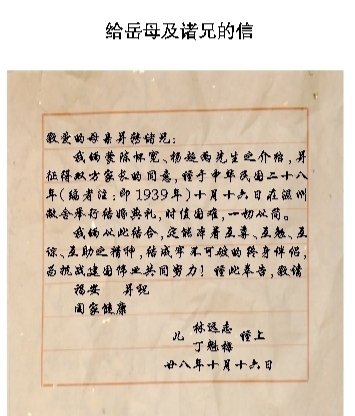 给岳母及诸兄的信
敬爱的母亲并转诸兄：
我俩蒙陈怀宽、杨超尚先生之介绍，并
征得双方家长的同意，谨于中华民国二十八
年（编者注：即1939年）十月十六日在温州
敝舍举行结婚典礼，时值国难，一切从简。
我俩从此结合，定能本着互尊、互勉、互
谅、互助之精神，结成牢不可破的终身伴侣，
为抗战建国伟业共同努力！谨此奉告，敬请
福安 并祝
阖家健康
儿 林远志
丁魁梅 谨上
廿八年十月十六日